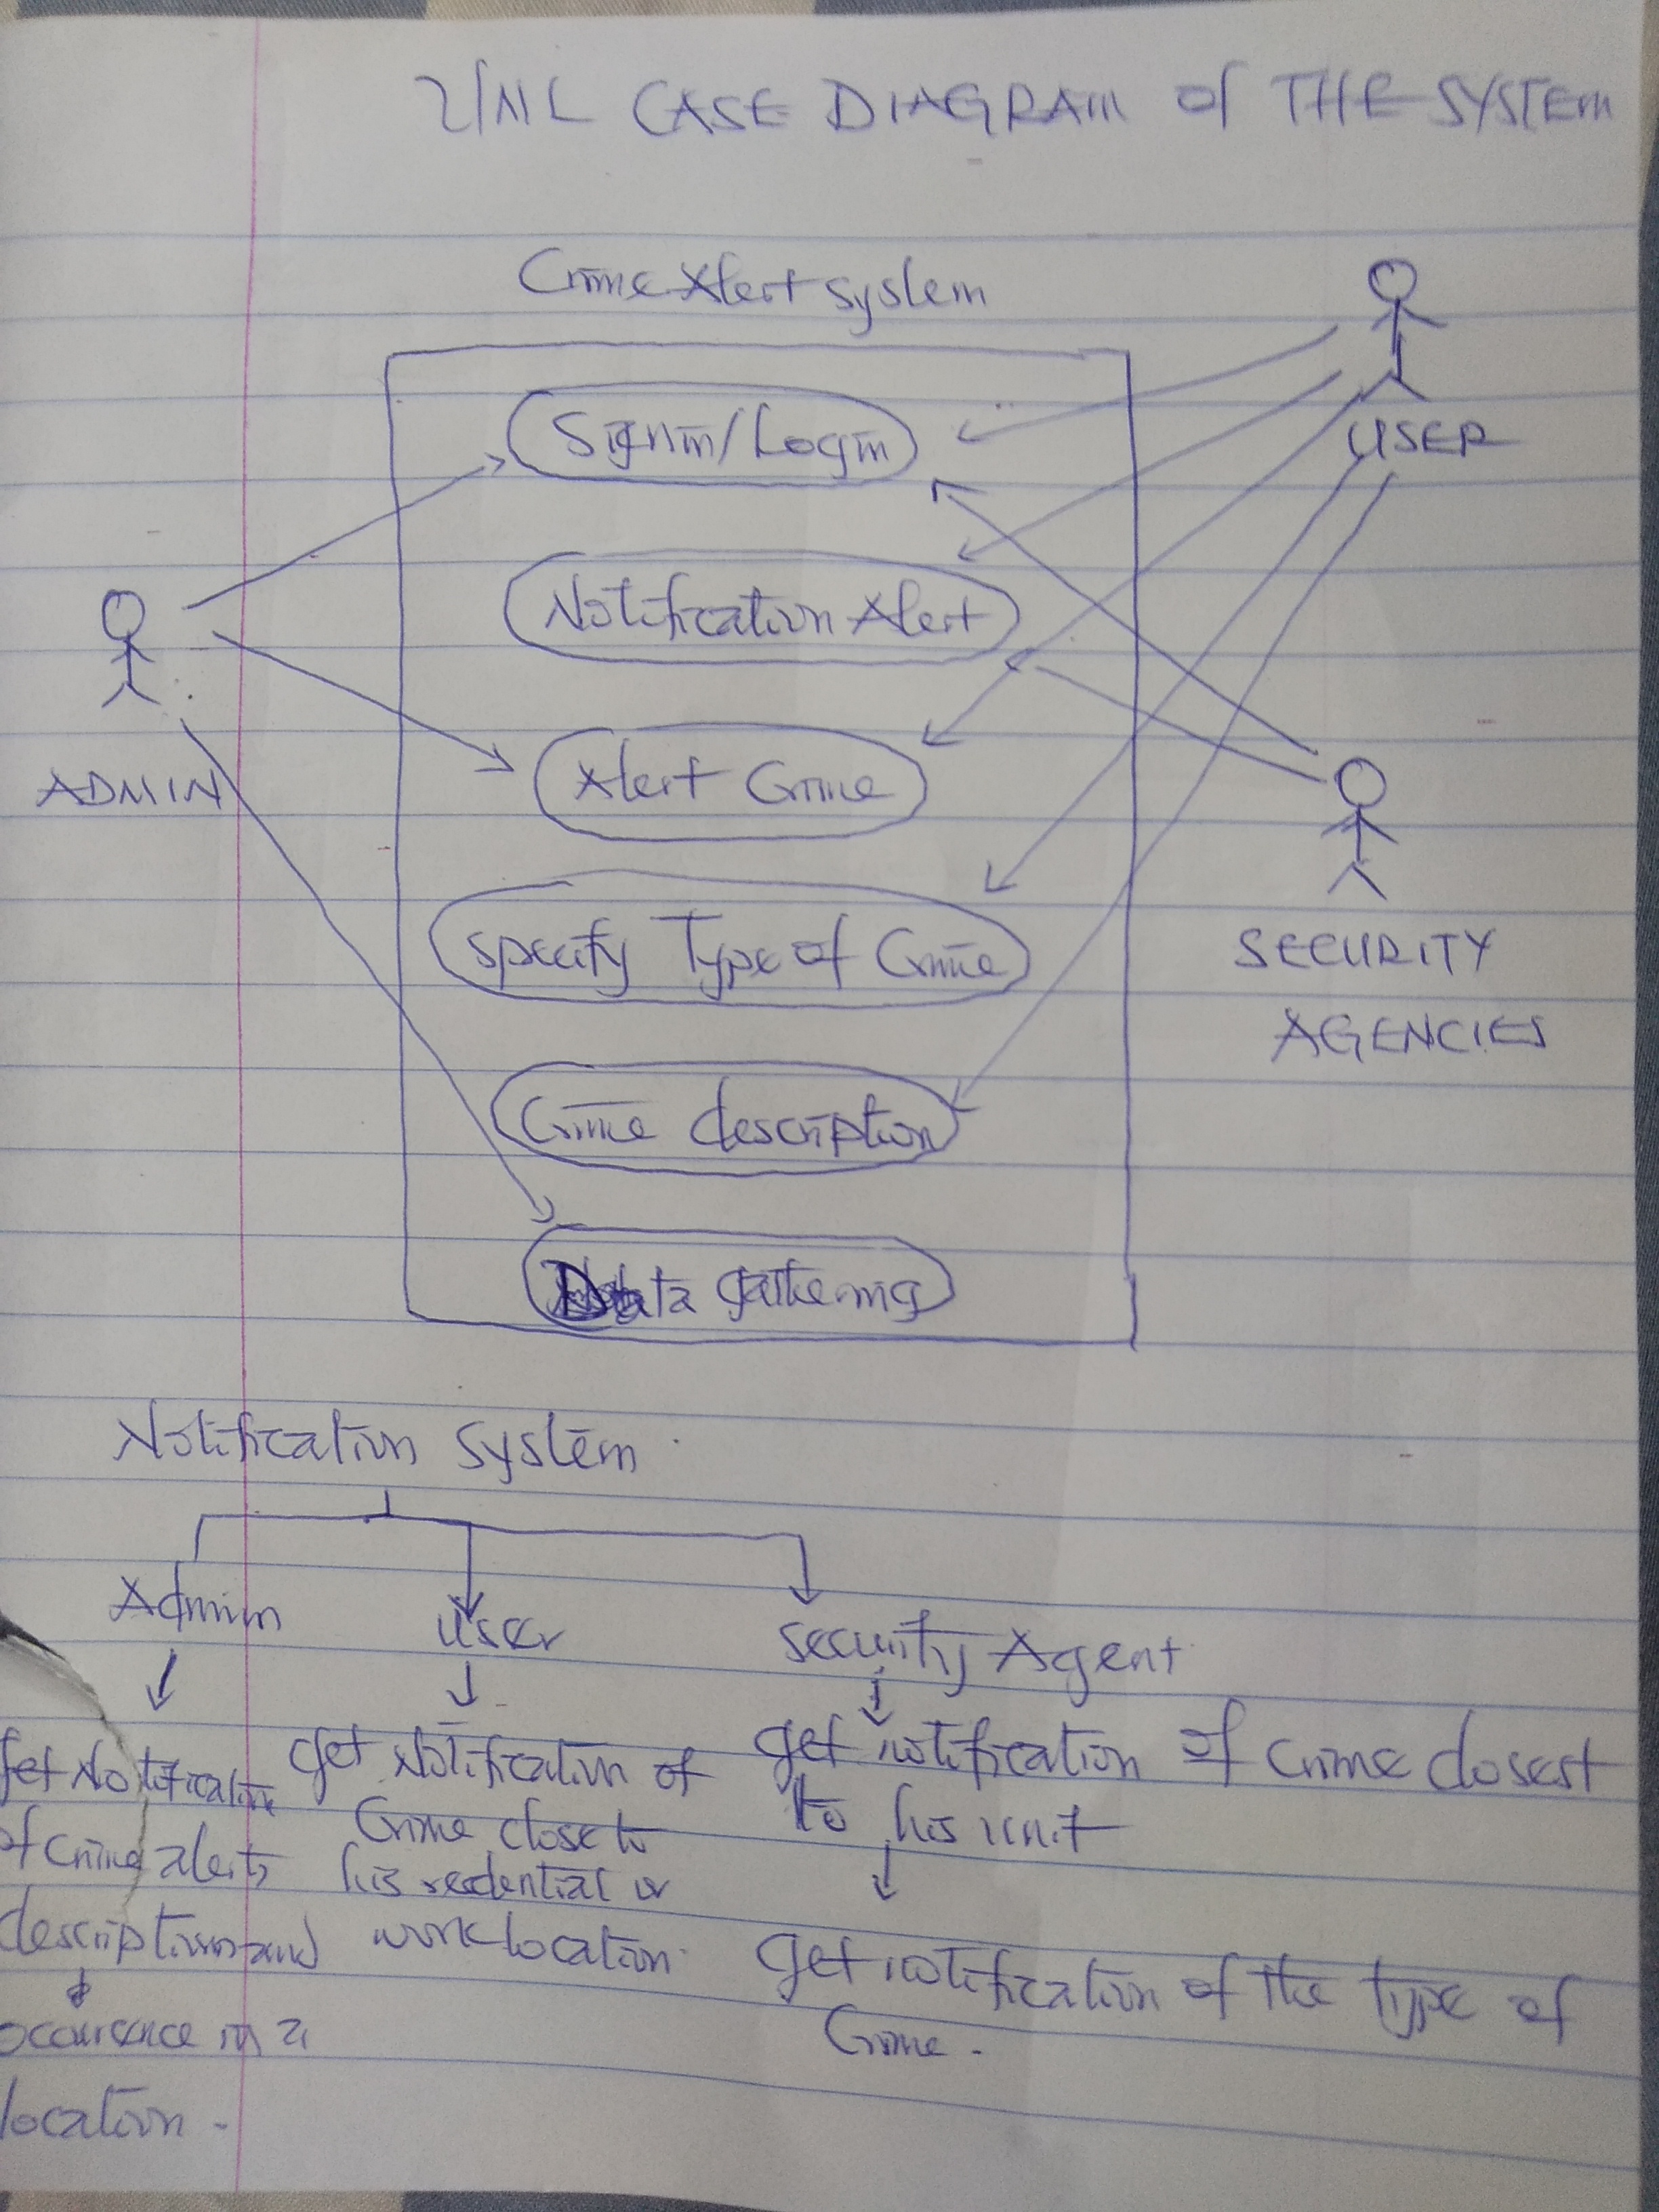 UML CASE DIAGRAM of THE SYSTEM
Crime Alert system
Signin/Login
USER
Notification Alert
ADMIN
Alert Crime
Specify Type of Crime
SECURITY
AGENCIES
Crime description
Data gathering
Notification system
Admin
user
security Agent
get Notification
of crime alerts
description and
occurrence in a
location.
get Notification of
Crime close to
his residential or
work location.
get notification of crime closest
to his unit
get notification of the type of
Crime.